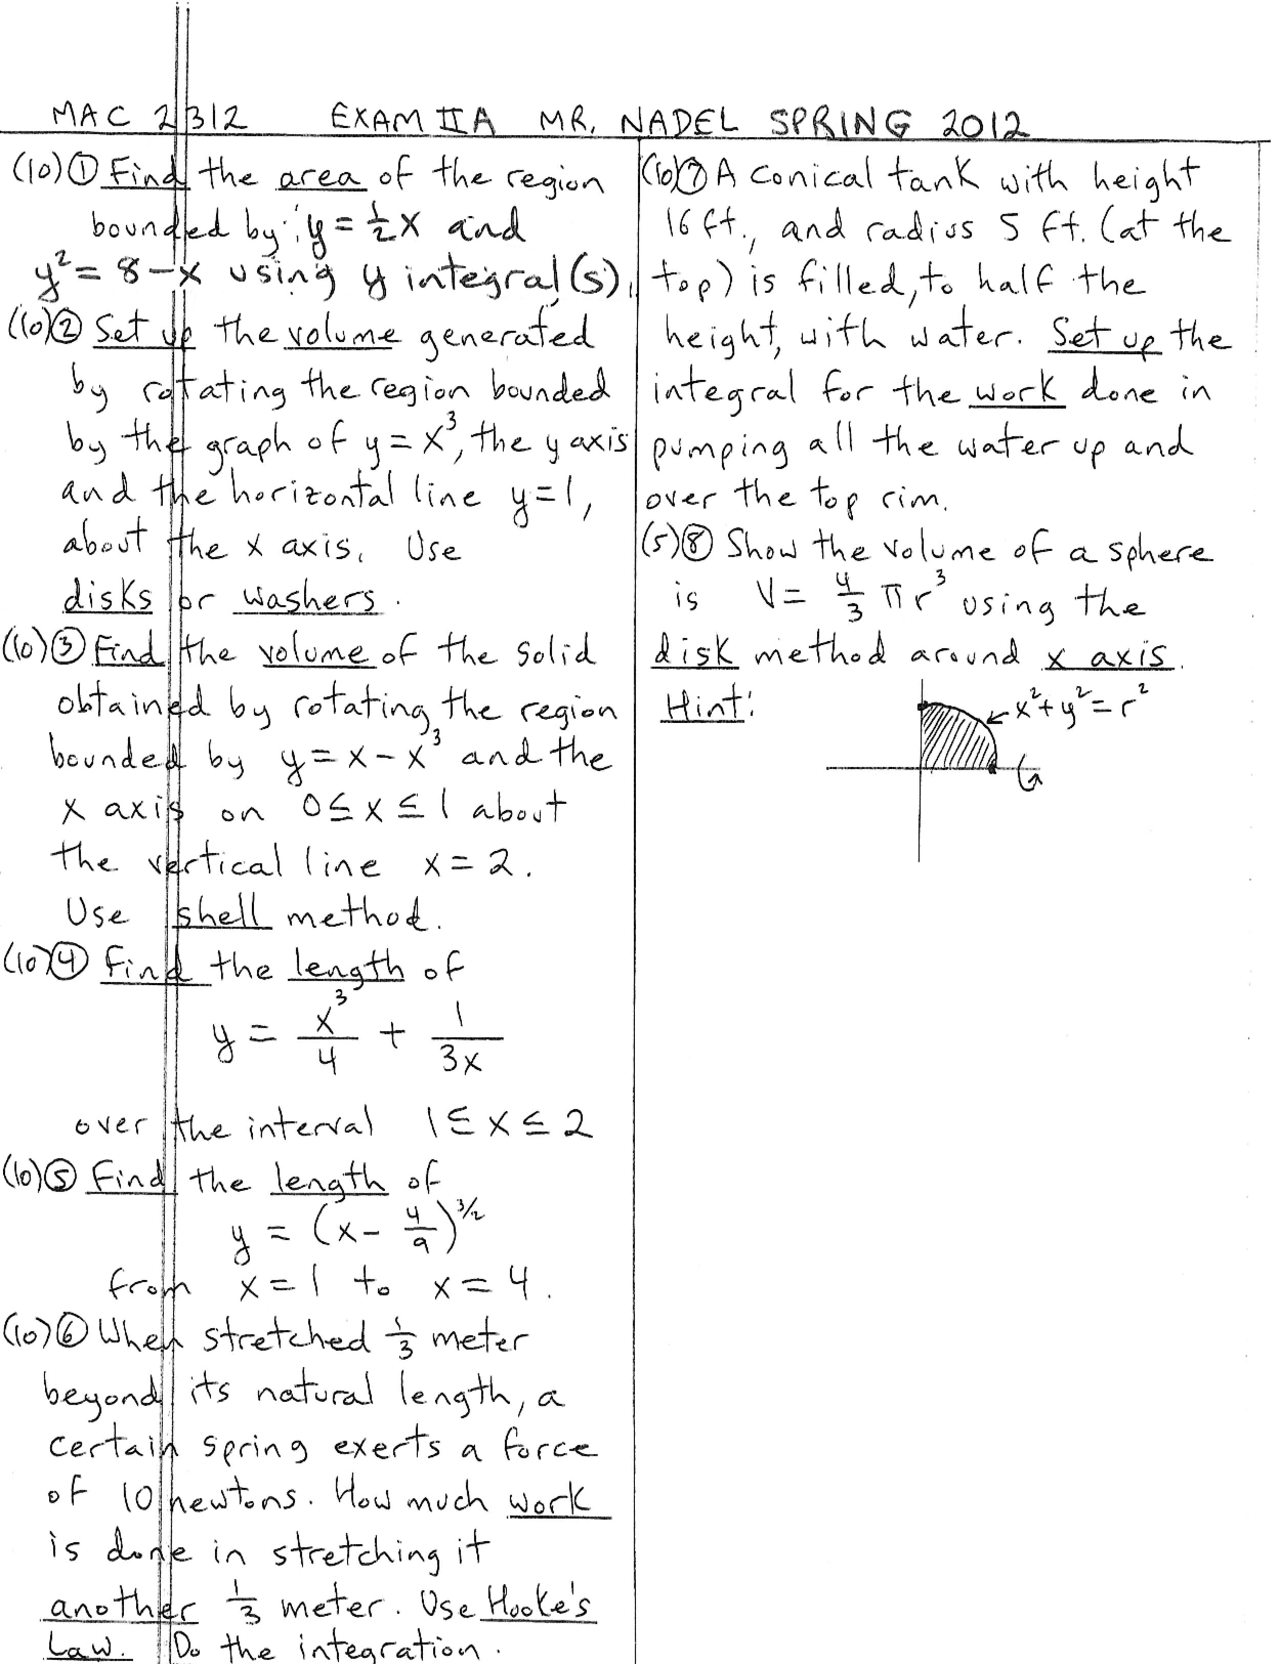 MAC 2312 EXAM IIA MR. NADEL SPRING 2012
(10) ① Find the area of the region
bounded by: y = ½x and
y² = 8 - x using y integral(s).
(10) ② Set up the volume generated
by rotating the region bounded
by the graph of y = x³, the y axis
and the horizontal line y=1,
about the x axis. Use
disks or washers.
(10) ③ Find the volume of the solid
obtained by rotating the region
bounded by y = x - x³ and the
x axis on 0 ≤ x ≤ 1 about
the vertical line x = 2.
Use shell method.
(10) ④ Find the length of
y = x³/4 + 1/3x
over the interval 1 ≤ x ≤ 2
(10) ⑤ Find the length of
y = (x - 4/9)^3/2
from x = 1 to x = 4.
(10) ⑥ When stretched 1/3 meter
beyond its natural length, a
certain spring exerts a force
of 10 newtons. How much work
is done in stretching it
another 1/3 meter. Use Hooke's
Law. Do the integration.
(10) ⑦ A conical tank with height
16 ft., and radius 5 ft. (at the
top) is filled, to half the
height, with water. Set up the
integral for the work done in
pumping all the water up and
over the top rim.
(5) ⑧ Show the volume of a sphere
is V = 4/3 πr³ using the
disk method around x axis.
Hint: x² + y² = r²